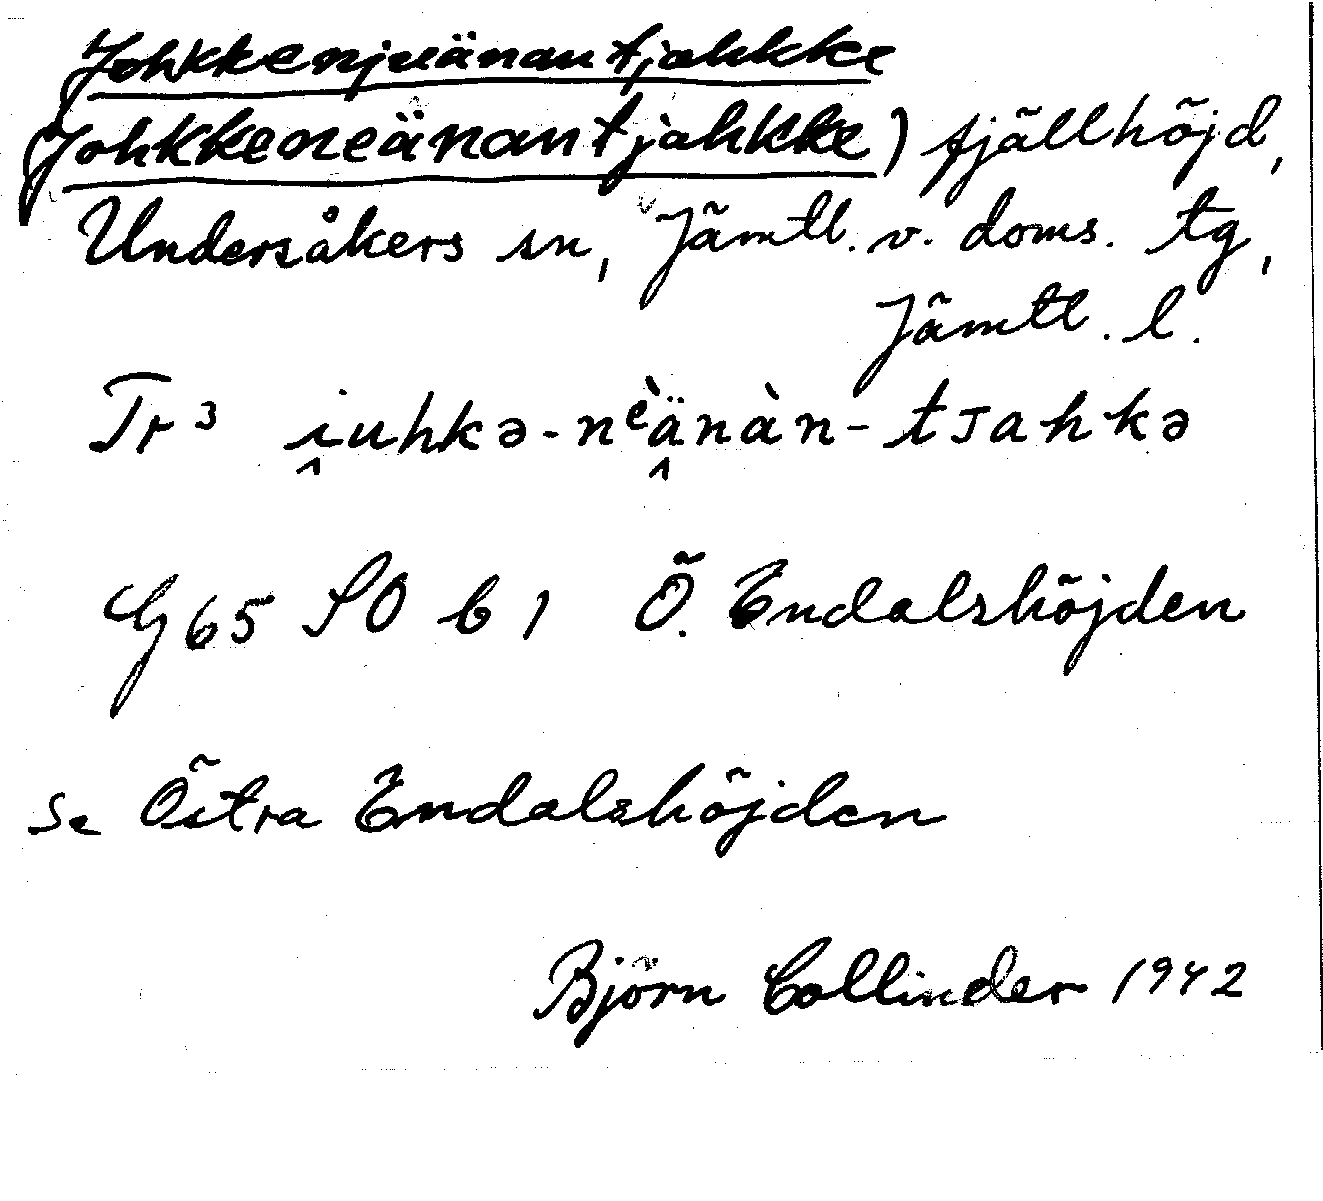 Johkkenjueänantjahkke
(Johkkeneeänantjahkke) fjällhöjd,
Undersåkers sn, Jämtl. v. doms. tg,
Jämtl. l.
Tr³ i̭uhkə-nᵉ̀ä̭nàn-tᴊahkə
G65 SO b 1 Ö. Endalshöjden
se Östra Endalshöjden
Björn Collinder 1942